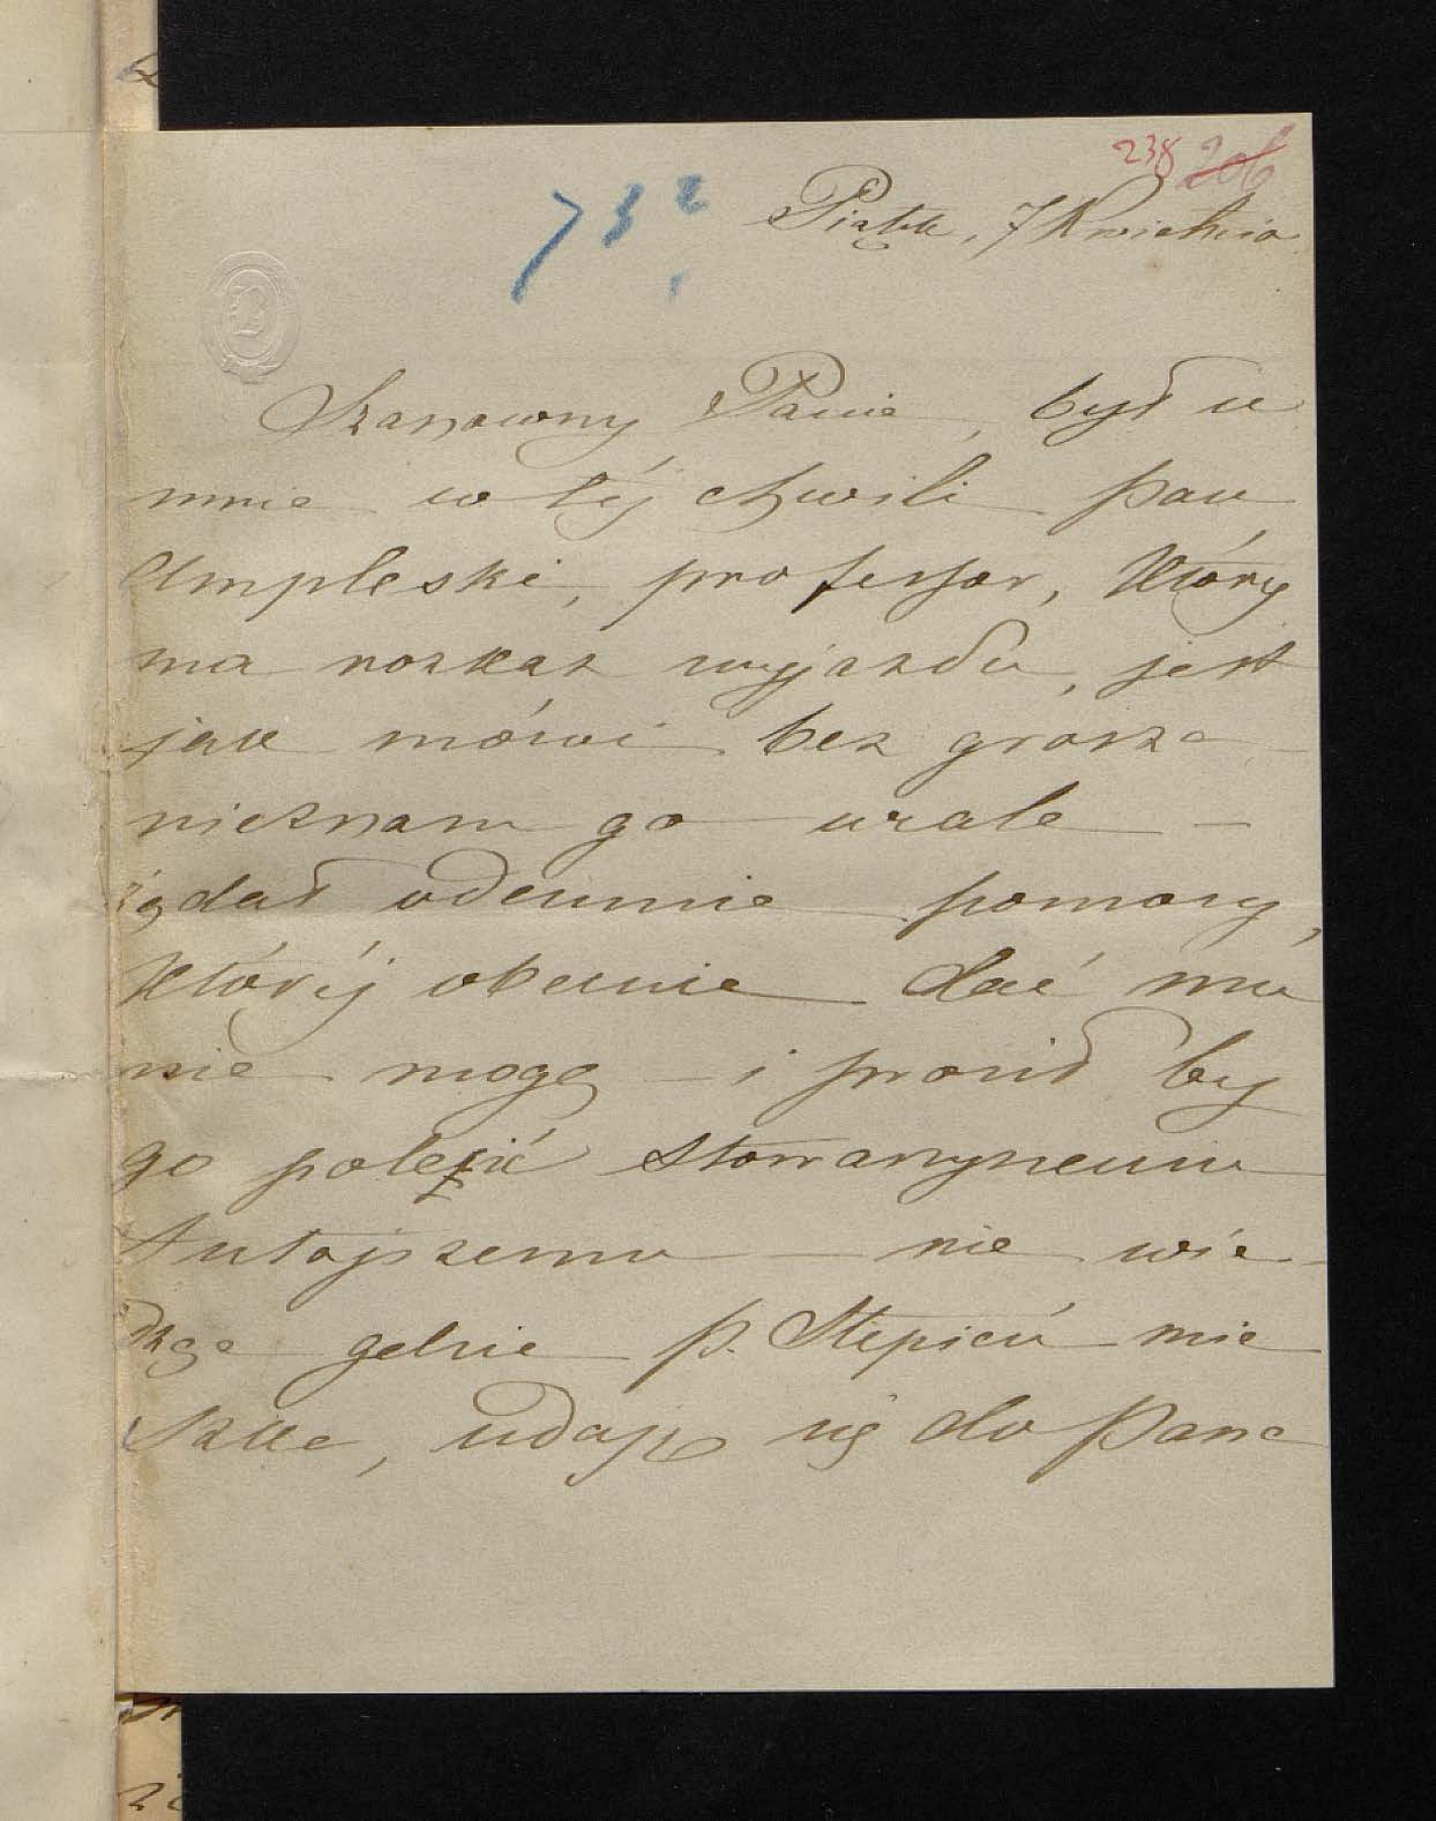 238 206
73?
Piątek, 7 Kwietnia
Szanowny Panie, był u
mnie w téj chwili pan
professor, który
ma rozkaz wyjazdu, jest
jak mówi bez grosza
nieznam go wcale –
żądał odemnie pomocy,
któréj obecnie dać mu
nie mogę – i prosił by
go polecić
tutajszemu – nie wie-
dząc gdzie p. mie
szka, udaję się do Pana